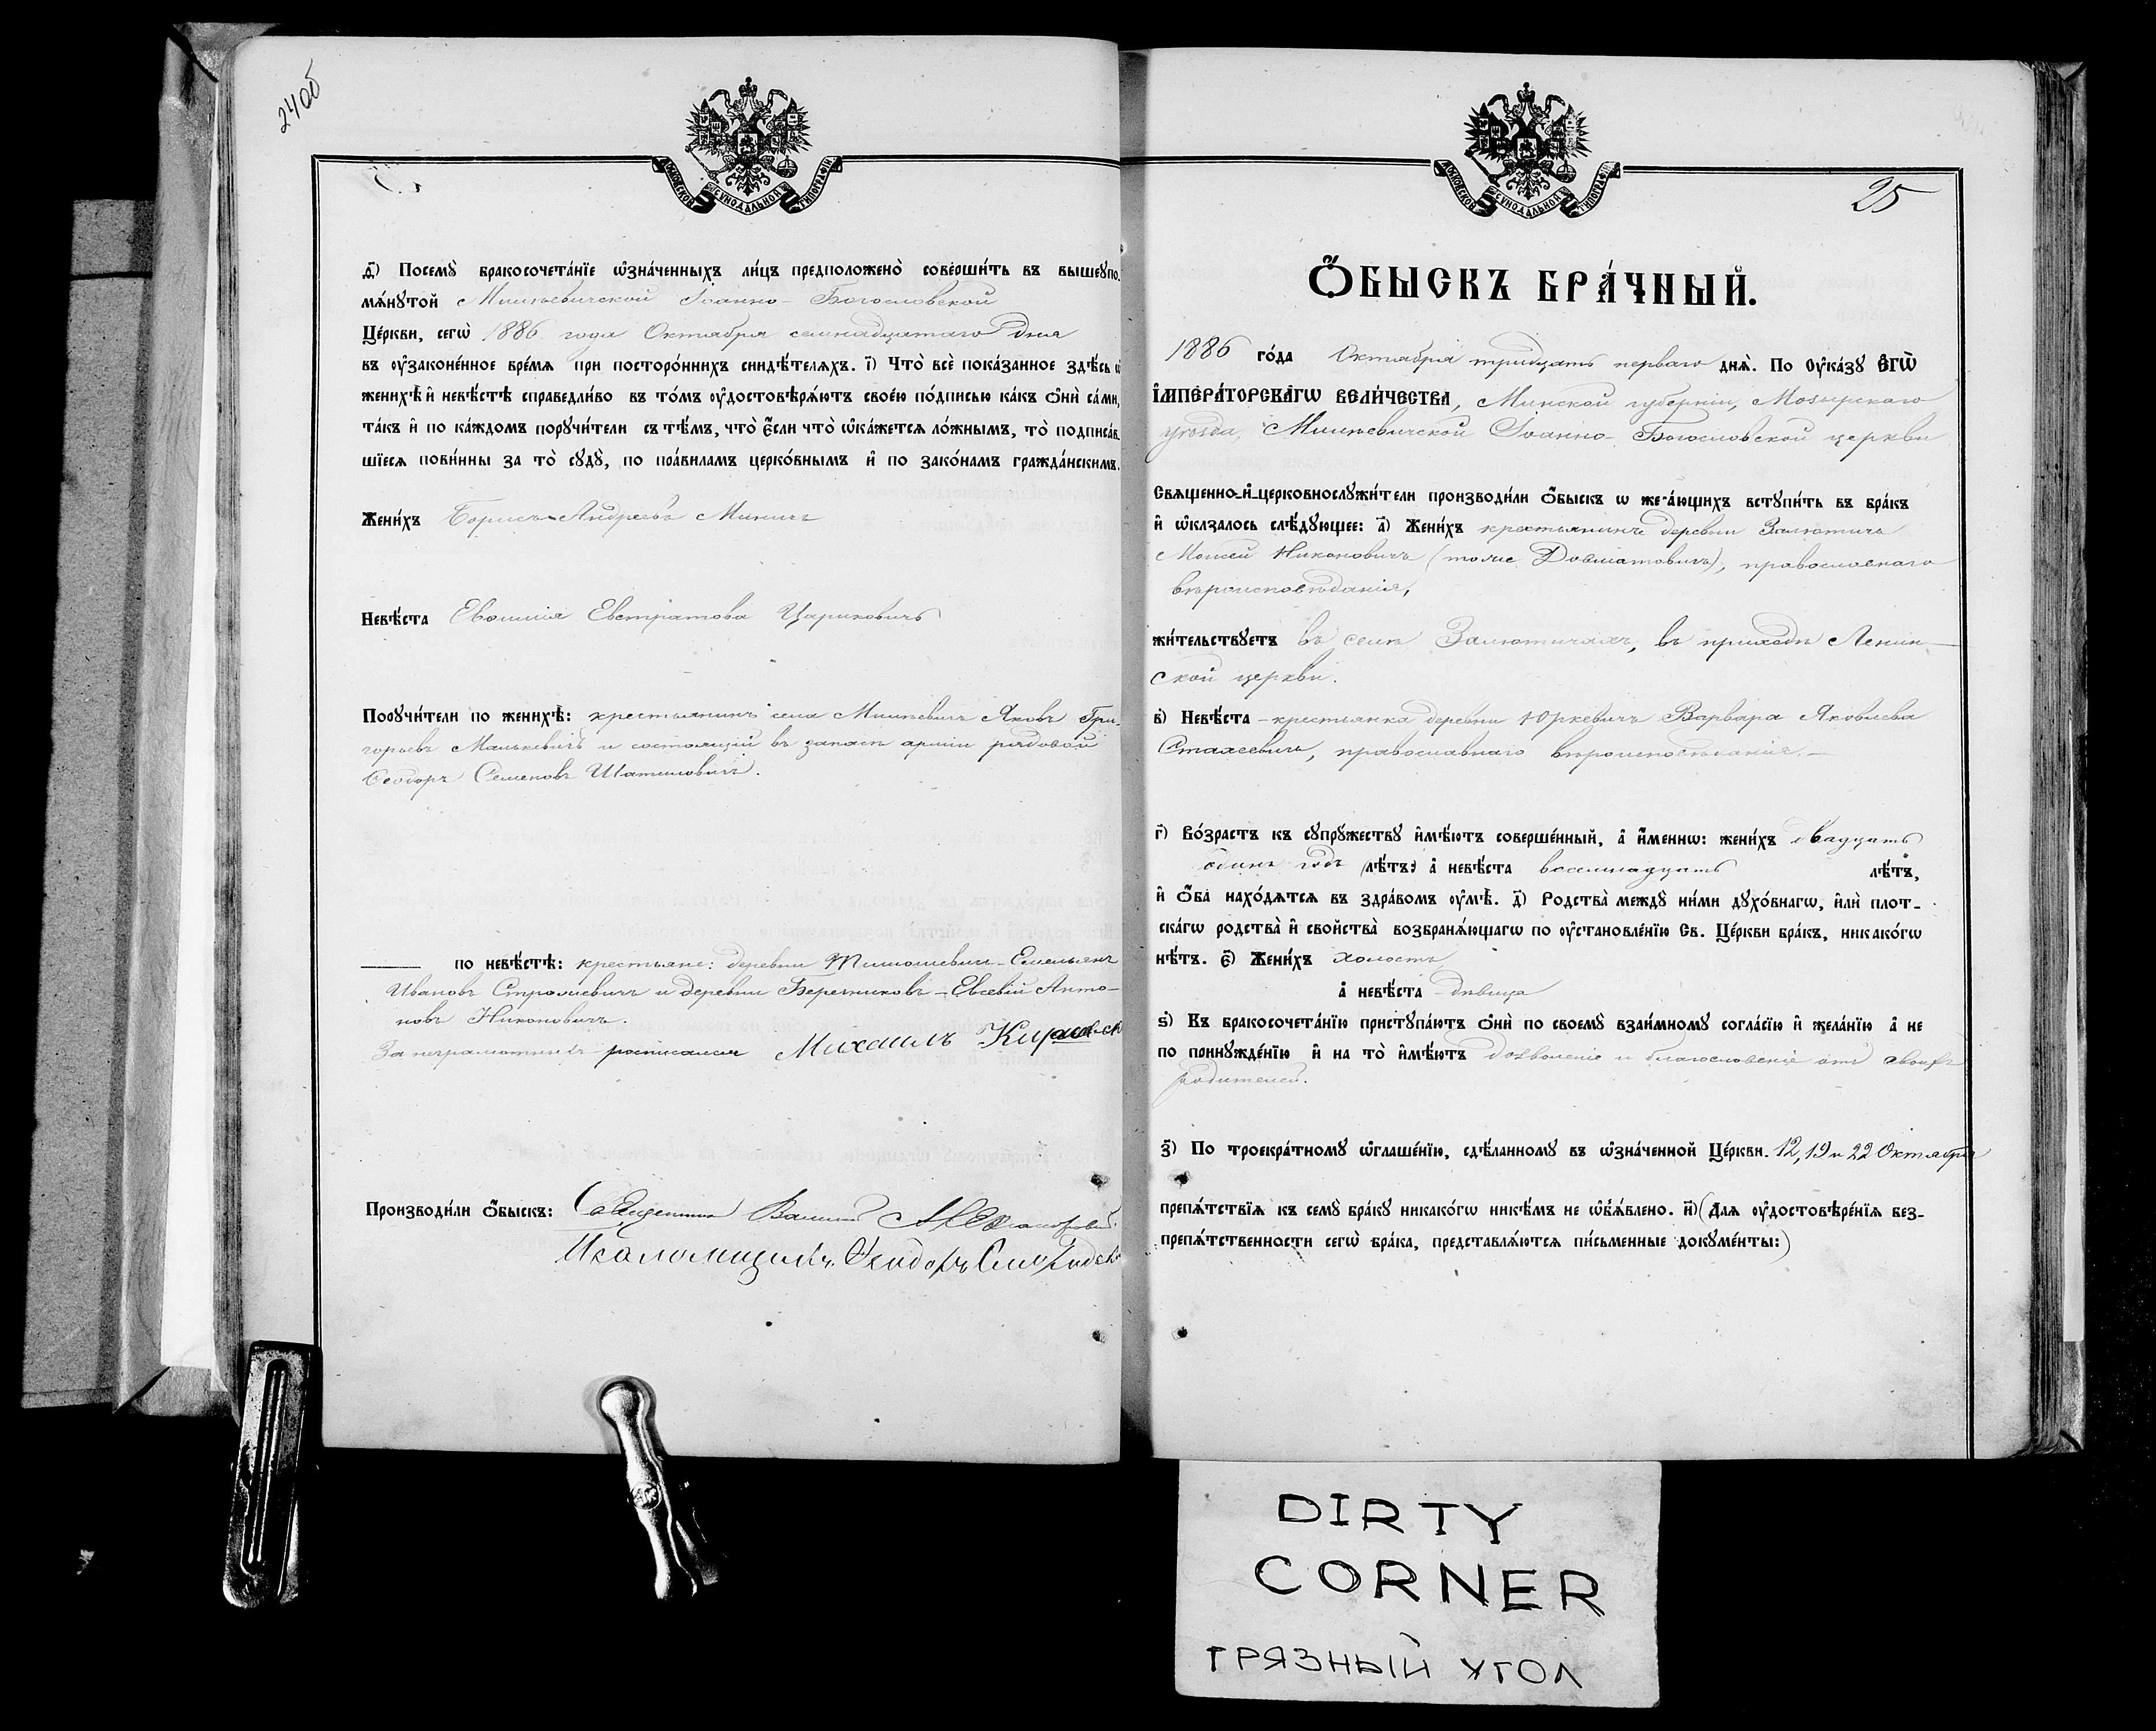 24об
МОСКОВСКОЙ СѴНОДАЛЬНОЙ ТИПОГРАФІИ
д҃і) Посемꙋ̀ бракосочета́нїе ѡ҆зна́ченныхъ ли́цъ предположено̀ соверши́ть въ вышеꙋпо-
мѧ́нꙋтой Милевичской Іоанно-Богословской
Це́ркви, сегѡ̀ 1886 года Октября семнадцатаго дня
въ ᲂу҆законе́нное вре́мѧ при посторо́ннихъ свидѣ́телѧхъ. і҃) Что̀ всѐ пока́занное здѣ́сь ѡ҆
женихѣ̀ и҆ невѣ́стѣ справедли́во въ то́мъ ᲂу҆достовѣрѧ́ютъ свое́ю по́дписью ка́къ ѻ҆нѝ са́ми,
та́къ и҆ по ка́ждомъ порꙋчи́тели съ тѣ́мъ, что̀ є҆́сли что̀ ѡ҆ка́жетсѧ ло́жнымъ, то̀ подписа́в-
шїесѧ пови́нны за то̀ сꙋдꙋ̀, по пра́виламъ церко́внымъ и҆ по зако́намъ гражда́нскимъ.
Жени́хъ Борисъ Андреевъ Миничъ
Невѣ́ста Евфимія Евстратова Цариковичъ
Порꙋчи́тели по женихѣ̀: крестьянинъ села Милевичъ Яковъ Гри-
горьевъ Манькевичъ и состоящій въ запасѣ арміи рядовой
Ѳеодоръ Семеновъ Шатиловичъ.
по невѣ́стѣ: крестьяне: деревни Емельянъ
Ивановъ и деревни Березниковъ - Евсевій Анто-
новъ Никоновичъ.
За неграмотныхъ росписался Михаилъ
Производи́ли ѻ҆́быскъ: Священникъ
Псаломщикъ Ѳеодоръ
МОСКОВСКОЙ СѴНОДАЛЬНОЙ ТИПОГРАФІИ
25
Ѻ҆́БЫСКЪ БРА́ЧНЫЙ.
1886 го́да Октября тридцать перваго днѧ̀. По ᲂу҆ка́зꙋ Є҆ГѠ̀
І҆МПЕРА́ТОРСКАГѠ ВЕЛИ́ЧЕСТВА, Минской губерніи, Мозырскаго
уѣзда, Милевичской Іоанно-Богословской церкви
Свѧщенно-и҆-церковнослꙋжи́тели производи́ли ѻ҆́быскъ ѡ жела́ющихъ встꙋпи́ть въ бра́къ
и҆ ѡ҆казалось слѣ́дꙋющее: а҃) Жени́хъ крестьянинъ деревни Залютичъ
Моисей Никоновичъ (тоже Довматовичъ), православнаго
вѣроисповѣданія,
жи́тельствꙋетъ въ селѣ Залютичахъ, въ приходѣ Ленин-
ской церкви.
в҃) Невѣ́ста - крестьянка деревни Юркевичъ Варвара Яковлева
Стахеевичъ, православнаго вѣроисповѣданія. -
г҃) Во́зрастъ къ сꙋпрꙋ́жествꙋ и҆мѣ́ютъ соверше́нный, а҆ и҆́меннѡ: жени́хъ двадцать
одинъ годъ (лѣ́тъ:) а҆ невѣ́ста восемнадцать лѣ́тъ,
и҆ ѻ҆́ба нахо́дѧтсѧ въ здра́вомъ ᲂу҆мѣ̀. д҃) Родства̀ междꙋ̀ ни́ми дꙋхо́внагѡ, и҆лѝ плот-
ска́гѡ родства̀ и҆ сво́йства̀ возбранѧ́ющагѡ по ᲂу҆становле́нїю Св. Це́ркви бра́къ, никако́гѡ
нѣ́тъ. є҃) Жени́хъ холостъ
а҆ невѣ́ста - дѣвица
ѕ҃) Къ бракосочета́нїю пристꙋпа́ютъ ѻ҆нѝ по своемꙋ̀ взаи́мномꙋ согла́сїю и҆ жела́нїю а҆ не
по принꙋжде́нїю и҆ на то̀ и҆мѣ́ютъ дозволеніе и благословеніе отъ своихъ
родителей.
з҃) По троекра́тномꙋ ѡ҆глаше́нїю, сдѣ́ланномꙋ въ ѡ҆зна́ченной Це́ркви. 12, 19 и 22 Октября
препѧ́тствїѧ къ семꙋ̀ бра́кꙋ никако́гѡ ники́мъ не ѡ҆бъѧ́влено. и҃) (Длѧ ᲂу҆достовѣре́нїѧ без-
препѧ́тственности сегѡ̀ бра́ка, представлѧ́ютсѧ пи́сьменные докꙋме́нты:)
DIRTY
CORNER
ГРЯЗНЫЙ УГОЛ